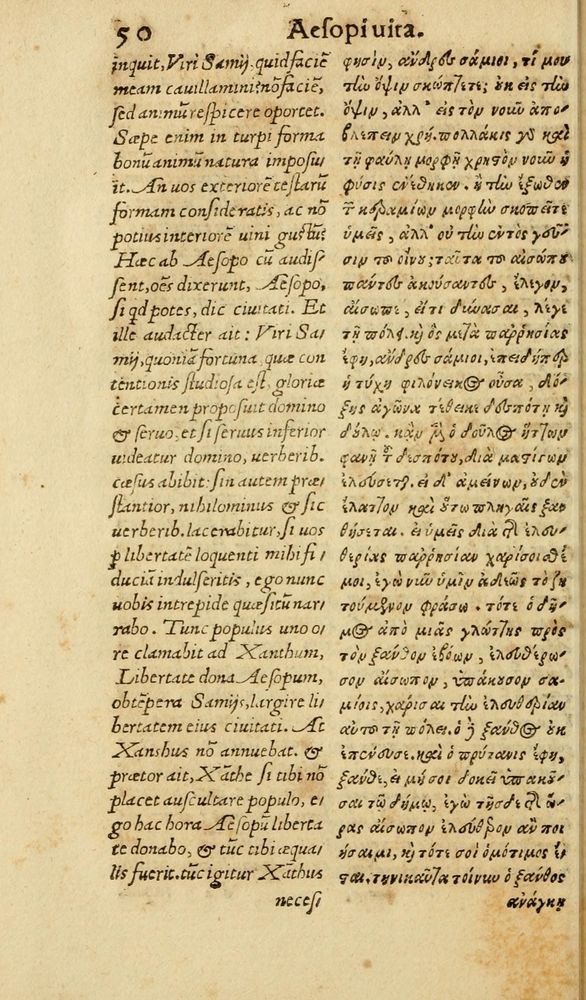 50 Aesopi vita.
inquit, Viri Samij, quid faciē
meam cauillamini: nō faciē,
sed animū respicere oportet.
Sæpe enim in turpi forma
bonū animū natura imposu
it. An uos exteriorē testarū
formam consideratis, ac nō
potius interiorē uini gustū?
Hæc ab Aesopo cū audis
sent, oēs dixerunt, Aesopo,
si qd potes, dic ciuitati. Et
ille audacter ait: Viri Sa
mij, quoniā fortuna, quæ con
tentionis studiosa est, gloriæ
certamen proposuit domino
& seruo, et si seruus inferior
uideatur domino, uerberib.
cæsus abibit: sin autem præ
stantior, nihilominus & sic
uerberib. lacerabitur, si uos
p libertatē loquenti mihi fi
duciā indulseritis, ego nunc
uobis intrepide quæsitū nar
rabo. Tunc populus uno o
re clamabit ad Xanthum,
Libertate dona Aesopum,
obtēpera Samijs, largire li
bertatem eius ciuitati. At
Xanshus nō annuebat. &
prætor ait, Xāthe si tibi nō
placet auscultare populo, e
go hac hora Aesopū liberta
te donabo, & tūc tibi æqua
lis fuerit. tūc igitur Xāthus
necesi
φησὶν, ἄνδρες σάμιοι, τί μου
τὴν ὄψιν σκώπτετε; οὐκ εἰς τὴν
ὄψιν, ἀλλ' εἰς τὸν νοῦν ἀπο
βλέπειν χρή. πολλάκις γὸ καὶ
τῇ φαύλῃ μορφῇ χρηστὸν νοῦν ἡ
φύσις ἐνέθηκεν. ἢ τὴν ἔξωθεν
τ κεραμίων μορφὴν σκοπεῖτε
ὑμεῖς, ἀλλ' οὐ τὴν ἐντὸς γεῦ
σιν τοῦ οἴνου; ταῦτα τοῦ αἰσώπου
πάντες ἀκούσαντες, ἔλεγον,
αἴσωπε, εἴ τι δύνασαι, λέγε
τῇ πόλει. καὶ ὃς μετὰ παῤῥησίας
ἔφη, ἄνδρες σάμιοι, ἐπειδήπερ
ἡ τύχη φιλόνεικος οὖσα, δό
ξης ἀγῶνα τέθεικε δεσπότῃ καὶ
δούλῳ. κἂν μὲν ὁ δοῦλος ἥττων
φανῇ τοῦ δεσπότου, διὰ μαστίγων
ἐλεύσεται. εἰ δ' ἀμείνων, οὐδὲν
ἔλαττον καὶ οὕτω πληγαῖς ξαν
θήσεται. εἰ ὑμεῖς διὰ τῆς ἐλευ
θερίας παῤῥησίαν χαρίσοισθέ
μοι, ἐγὼ νῦν ὑμῖν ἀδεῶς τὸ ζη
τούμενον φράσω. τότε ὁ δῆ
μος ἀπὸ μιᾶς γλώττης πρὸς
τὸν ξάνθον ἐβόων, ἐλευθέρω
σον αἴσωπον, ὑπάκουσον σα
μίοις, χάρισαι τὴν ἐλευθερίαν
αὐτοῦ τῇ πόλει. ὁ δὲ ξάνθος οὐκ
ἐπένευσε. καὶ ὁ πρύτανις ἔφη,
ξάνθε, εἰ μή σοι δοκεῖ ὑπακοῦ
σαι τῷ δήμῳ, ἐγὼ τῆσδε τῆς ὥ
ρας αἴσωπον ἐλεύθερον ἂν ποι
ήσαιμι, καὶ τότε σοὶ ὁμότιμος ἔ
σται. τηνικαῦτα τοίνυν ὁ ξάνθος
ἀνάγκη